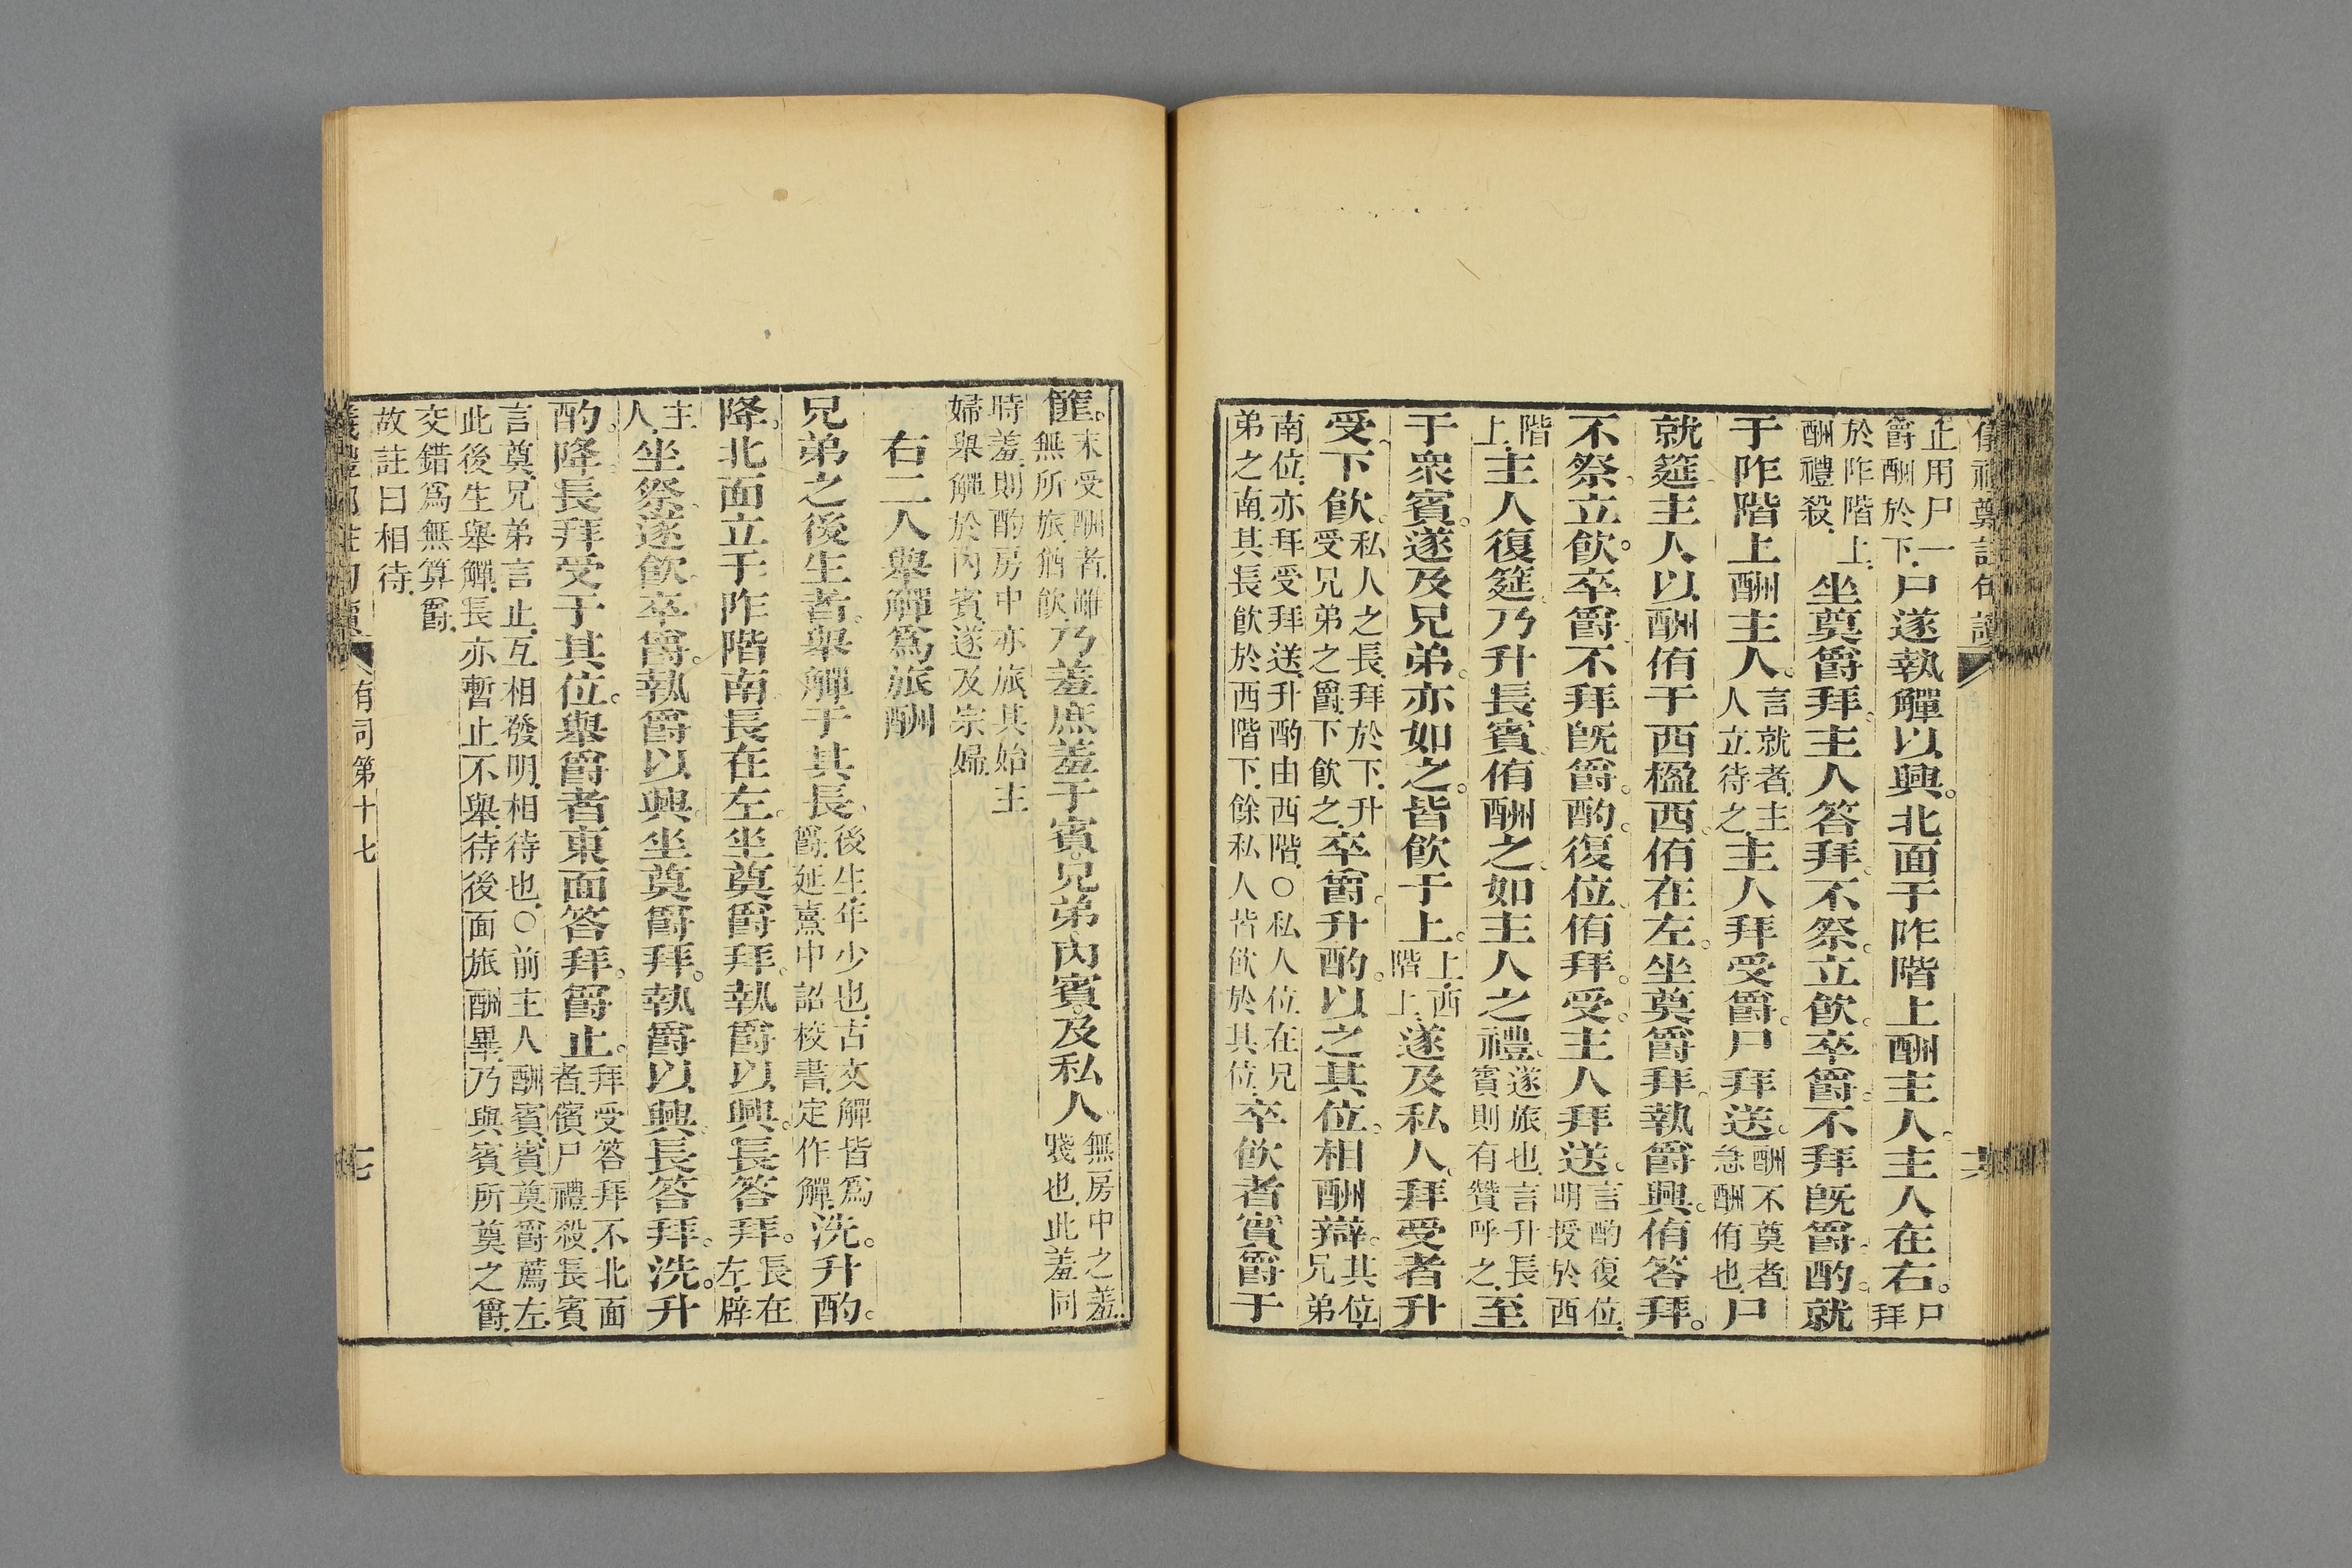 止用尸一爵酬於下尸遂執觶以興。北面于阼階上酬主人。主人在右。尸拜
於阼階上酬禮殺坐奠爵拜。主人答拜。不祭。立飮。卒爵。不拜旣爵。酌。就
于阼階上酬主人。言就者主人立待之主人拜受爵。尸拜送。酬不奠者急酬侑也尸
就筵主人以酬侑于西楹西侑在左。坐奠爵拜。執爵興。侑答拜。
不祭。立飮。卒爵。不拜旣爵。酌。復位。侑拜。受。主人拜送。言酌復位明授於西
階上主人復筵。乃升長賓。侑酬之。如主人之禮。遂旅也言升長賓則有贊呼之至
于衆賓。遂及兄弟。亦如之。皆飮于上。上西階上遂及私人。拜受者升
受。下飮。私人之長拜於下升受兄弟之爵下飮之卒爵。升酌。以之其位。相酬辯。其位兄弟
南位亦拜受拜送升酌由西階○私人位在兄弟之南其長飮於西階下餘私人皆飮於其位卒飮者實爵于
篚。末受酬者雖無所旅猶飮乃羞庶羞于賓。兄弟。內賓。及私人無房中之羞賤也此羞同
時羞則酌房中亦旅其始主婦舉觶於內賓遂及宗婦
右二人舉觶爲旅酬
兄弟之後生者。舉觶于其長。後生年少也古文觶皆爲爵延熹中詔校書定作觶洗。升酌。
降。北面立于阼階南。長在左。坐奠爵拜。執爵以興。長答拜。長在左辟
主人坐祭。遂飮。卒爵。執爵以興。坐奠爵拜。執爵以興。長答拜。洗。升
酌。降。長拜受于其位。舉爵者東面答拜。爵止。拜受答拜不北面者儐尸禮殺長賓
言奠兄弟言止互相發明相待也○前主人酬賓賓奠爵薦左
此後生舉觶長亦暫止不舉待後面旅酬畢乃與賓所奠之爵
交錯爲無算爵
故註曰相待
有司第十七